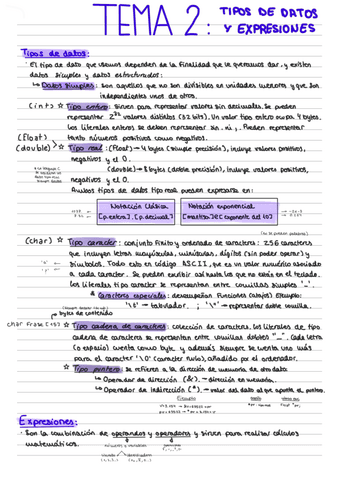 TEMA 2: TIPOS DE DATOS Y EXPRESIONES
Tipos de datos:
· El tipo de dato que usemos dependen de la finalidad que le queramos dar, y existen
datos simples y datos estructurados:
↳ Datos simples: Son aquellos que no son divisibles en unidades menores y que son
independientes unos de otros.
(int) ☆ Tipo entero: Sirven para representar valores sin decimales. Se pueden
representar 2³² valores distintos (32 bits). Un valor tipo entero ocupa 4 bytes.
Los literales enteros se deben representar sin. ni , . Pueden representar
tanto números positivos como negativos.
(float)
(double) ☆ Tipo real: (Float) → 4 bytes (simple precisión), incluye valores positivos,
negativos y el 0.
(double) → 8 bytes (doble precisión), incluye valores positivos,
negativos y el 0.
Ambos tipos de datos tipo real pueden expresarse en:
Notación Clásica
[p.entera].[p.decimal]
Notación exponencial
[mantisa]e[exponente del 10]
(char) ☆ Tipo caracter: conjunto finito y ordenado de caracteres: 256 caracteres
que incluyen letras mayúsculas, minúsculas, dígitos (sin poder operar) y
símbolos. Todo esto en código ASCII, que es un valor numérico asociado
a cada caracter. Se pueden escribir así hasta los que no están en el teclado.
Los literales tipo caracter se representan entre comillas simples '_'.
↳ Caracteres especiales: desempeñan funciones (staffs) Ejemplo:
'\t' → tabulador. ; '\"' → representar doble comilla.
bytes de contenido
☆ Tipo cadena de caracteres: colección de caracteres. Los literales de tipo
cadena de caracteres se representan entre comillas dobles "_". Cada letra
(o espacio) cuenta como byte y además siempre se cuenta uno más
para el caracter '\0' (caracter nulo), añadido por el ordenador.
☆ Tipo puntero: Se refieren a la dirección de memoria de otro dato:
↳ Operador de dirección (&). → dirección en memoria.
↳ Operador de indirección (*). → valor del dato al que apunta el puntero.
Expresiones:
· Son la combinación de operandos y operadores y sirven para realizar cálculos
matemáticos.